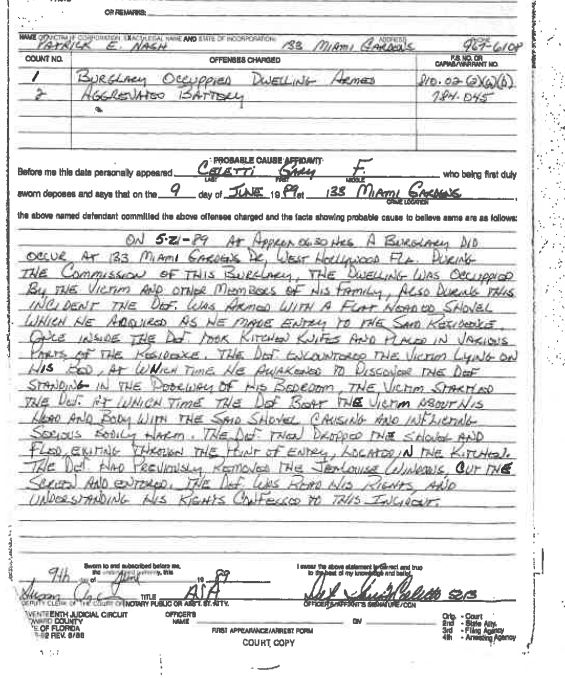 OR REMARKS:
NAME OF VICTIM (IF CORPORATION, EXACT LEGAL NAME AND STATE OF INCORPORATION) ADDRESS PHONE
PATRICK E. NASH 133 MIAMI GARDENS 967-6108
COUNT NO. OFFENSES CHARGED F.S. NO. OR CAPIAS/WARRANT NO.
1 BURGLARY OCCUPPIED DWELLING ARMED 810.02
2 AGGREVATED BATTERY 784.045
PROBABLE CAUSE AFFIDAVIT
Before me this date personally appeared COLETTI GARY F. who being first duly
LAST FIRST MIDDLE
sworn deposes and says that on the 9 day of JUNE 19 89 at 133 MIAMI GARDENS
CRIME LOCATION
the above named defendant committed the above offenses charged and the facts showing probable cause to believe same are as follows:
ON 5-21-89 AT APPROX 0630 HRS A BURGLARY DID
OCCUR AT 133 MIAMI GARDENS DR, WEST HOLLYWOOD FLA. DURING
THE COMMISSION OF THIS BURGLARY, THE DWELLING WAS OCCUPPIED
BY THE VICTIM AND OTHER MEMBERS OF HIS FAMILY, ALSO DURING THIS
INCIDENT THE DEF. WAS ARMED WITH A FLAT HEADED SHOVEL
WHICH HE AQUIRED AS HE MADE ENTRY TO THE SAID RESIDENCE.
ONCE INSIDE THE DEF TOOK KITCHEN KNIFES AND PLACED IN VARIOUS
PARTS OF THE RESIDENCE. THE DEF ENCOUNTERED THE VICTIM LYING ON
HIS BED, AT WHICH TIME HE AWAKENED TO DISCOVER THE DEF
STANDING IN THE DOORWAY OF HIS BEDROOM, THE VICTIM STARTLED
THE DEF. AT WHICH TIME THE DEF BEAT THE VICTIM ABOUT HIS
HEAD AND BODY WITH THE SAID SHOVEL CAUSING AND INFLICTING
SERIOUS BODILY HARM. THE DEF. THEN DROPPED THE SHOVEL AND
FLED, EXITING THROUGH THE POINT OF ENTRY, LOCATED IN THE KITCHEN.
THE DEF. HAD PREVIOUSLY REMOVED THE JEALOUSE WINDOWS, CUT THE
SCREEN AND ENTERED. THE DEF. WAS READ HIS RIGHTS, AND
UNDERSTANDING HIS RIGHTS CONFESSED TO THIS INCIDENT.
Sworn to and subscribed before me, I swear the above statement is correct and true
the undersigned authority, this to the best of my knowledge and belief.
9th day of June 19 89
Susan TITLE ASA Det 5213
DEPUTY CLERK OF THE COURT OR NOTARY PUBLIC OR ASST. ST. ATTY. OFFICER'S/AFFIANT'S SIGNATURE/CCN
SEVENTEENTH JUDICIAL CIRCUIT OFFICER'S Orig. - Court
COUNTY NAME DIV 2nd - State Atty.
OF FLORIDA 3rd - Filing Agency
REV. 6/88 FIRST APPEARANCE/ARREST FORM 4th - Arresting Agency
COURT COPY